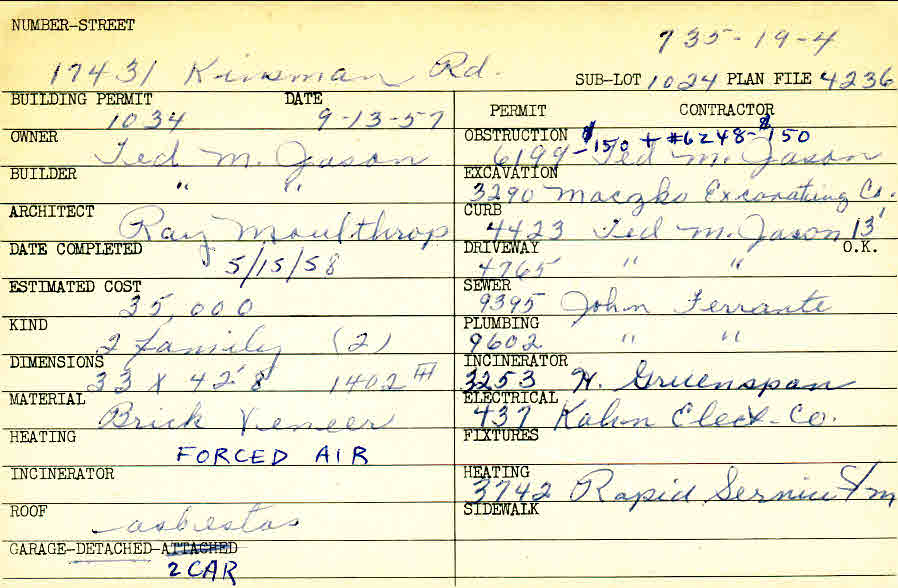 NUMBER-STREET
735-19-4
17431 Kinsman Rd.
SUB-LOT 1024 PLAN FILE 4236
BUILDING PERMIT DATE
1034 9-13-57
OWNER
Ted M. Jason
BUILDER
" "
ARCHITECT
Ray Moulthrop
DATE COMPLETED
5/15/58
ESTIMATED COST
35,000
KIND
2 family (2)
DIMENSIONS
33 x 42'8 1402
MATERIAL
Brick Veneer
HEATING
FORCED AIR
INCINERATOR
ROOF
asbestos
GARAGE-DETACHED-ATTACHED
2 CAR
PERMIT CONTRACTOR
OBSTRUCTION $150 + #6248-$150
6199- Ted M. Jason
EXCAVATION
3290 Maczko Excavating Co.
CURB
4423 Ted M. Jason 13'
DRIVEWAY O.K.
4765 " "
SEWER
9395 John Ferrante
PLUMBING
9602 " "
INCINERATOR
3253 H. Gruenspan
ELECTRICAL
437 Kahn Elect. Co.
FIXTURES
HEATING
3742 Rapid Service
SIDEWALK